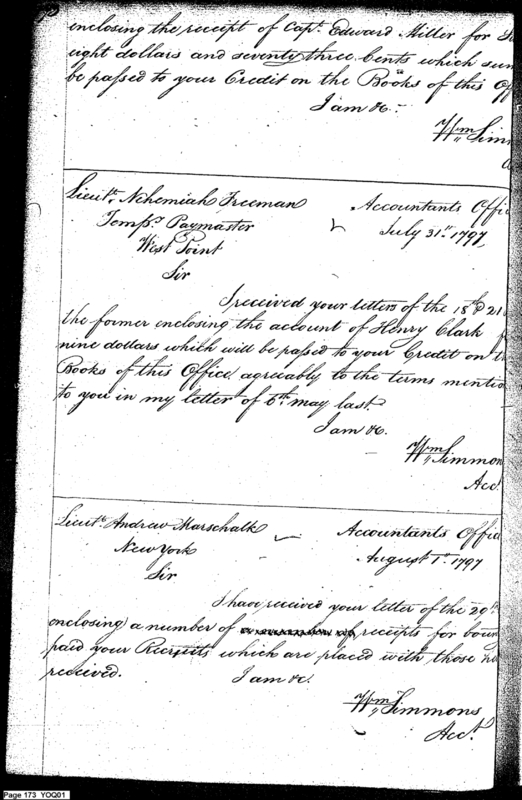 enclosing the receipt of Capt. Edward Miller for
eight dollars and seventy three Cents which sum
be passed to your Credit on the Books of this Off
I am &c.
Wm Simm
Lieut. Nehemiah Freeman Accountants Offic
Tempy. Paymaster July 31st 1797
West Point
Sir
I received your letters of the 18th & 21
the former enclosing the account of Henry Clark
nine dollars which will be passed to your Credit on t
Books of this Office agreeably to the terms mentio
to you in my letter of 6th may last.
I am &c.
Wm Simmon
Acct
Lieut. Andrew Marschalk Accountants Offic
New York August 1st 1797
Sir
I have received your letter of the 29th
enclosing a number of receipts for boun
paid your Recruits which are placed with those
received. I am &c.
Wm Simmons
Acct.
Page 173 YOQ01